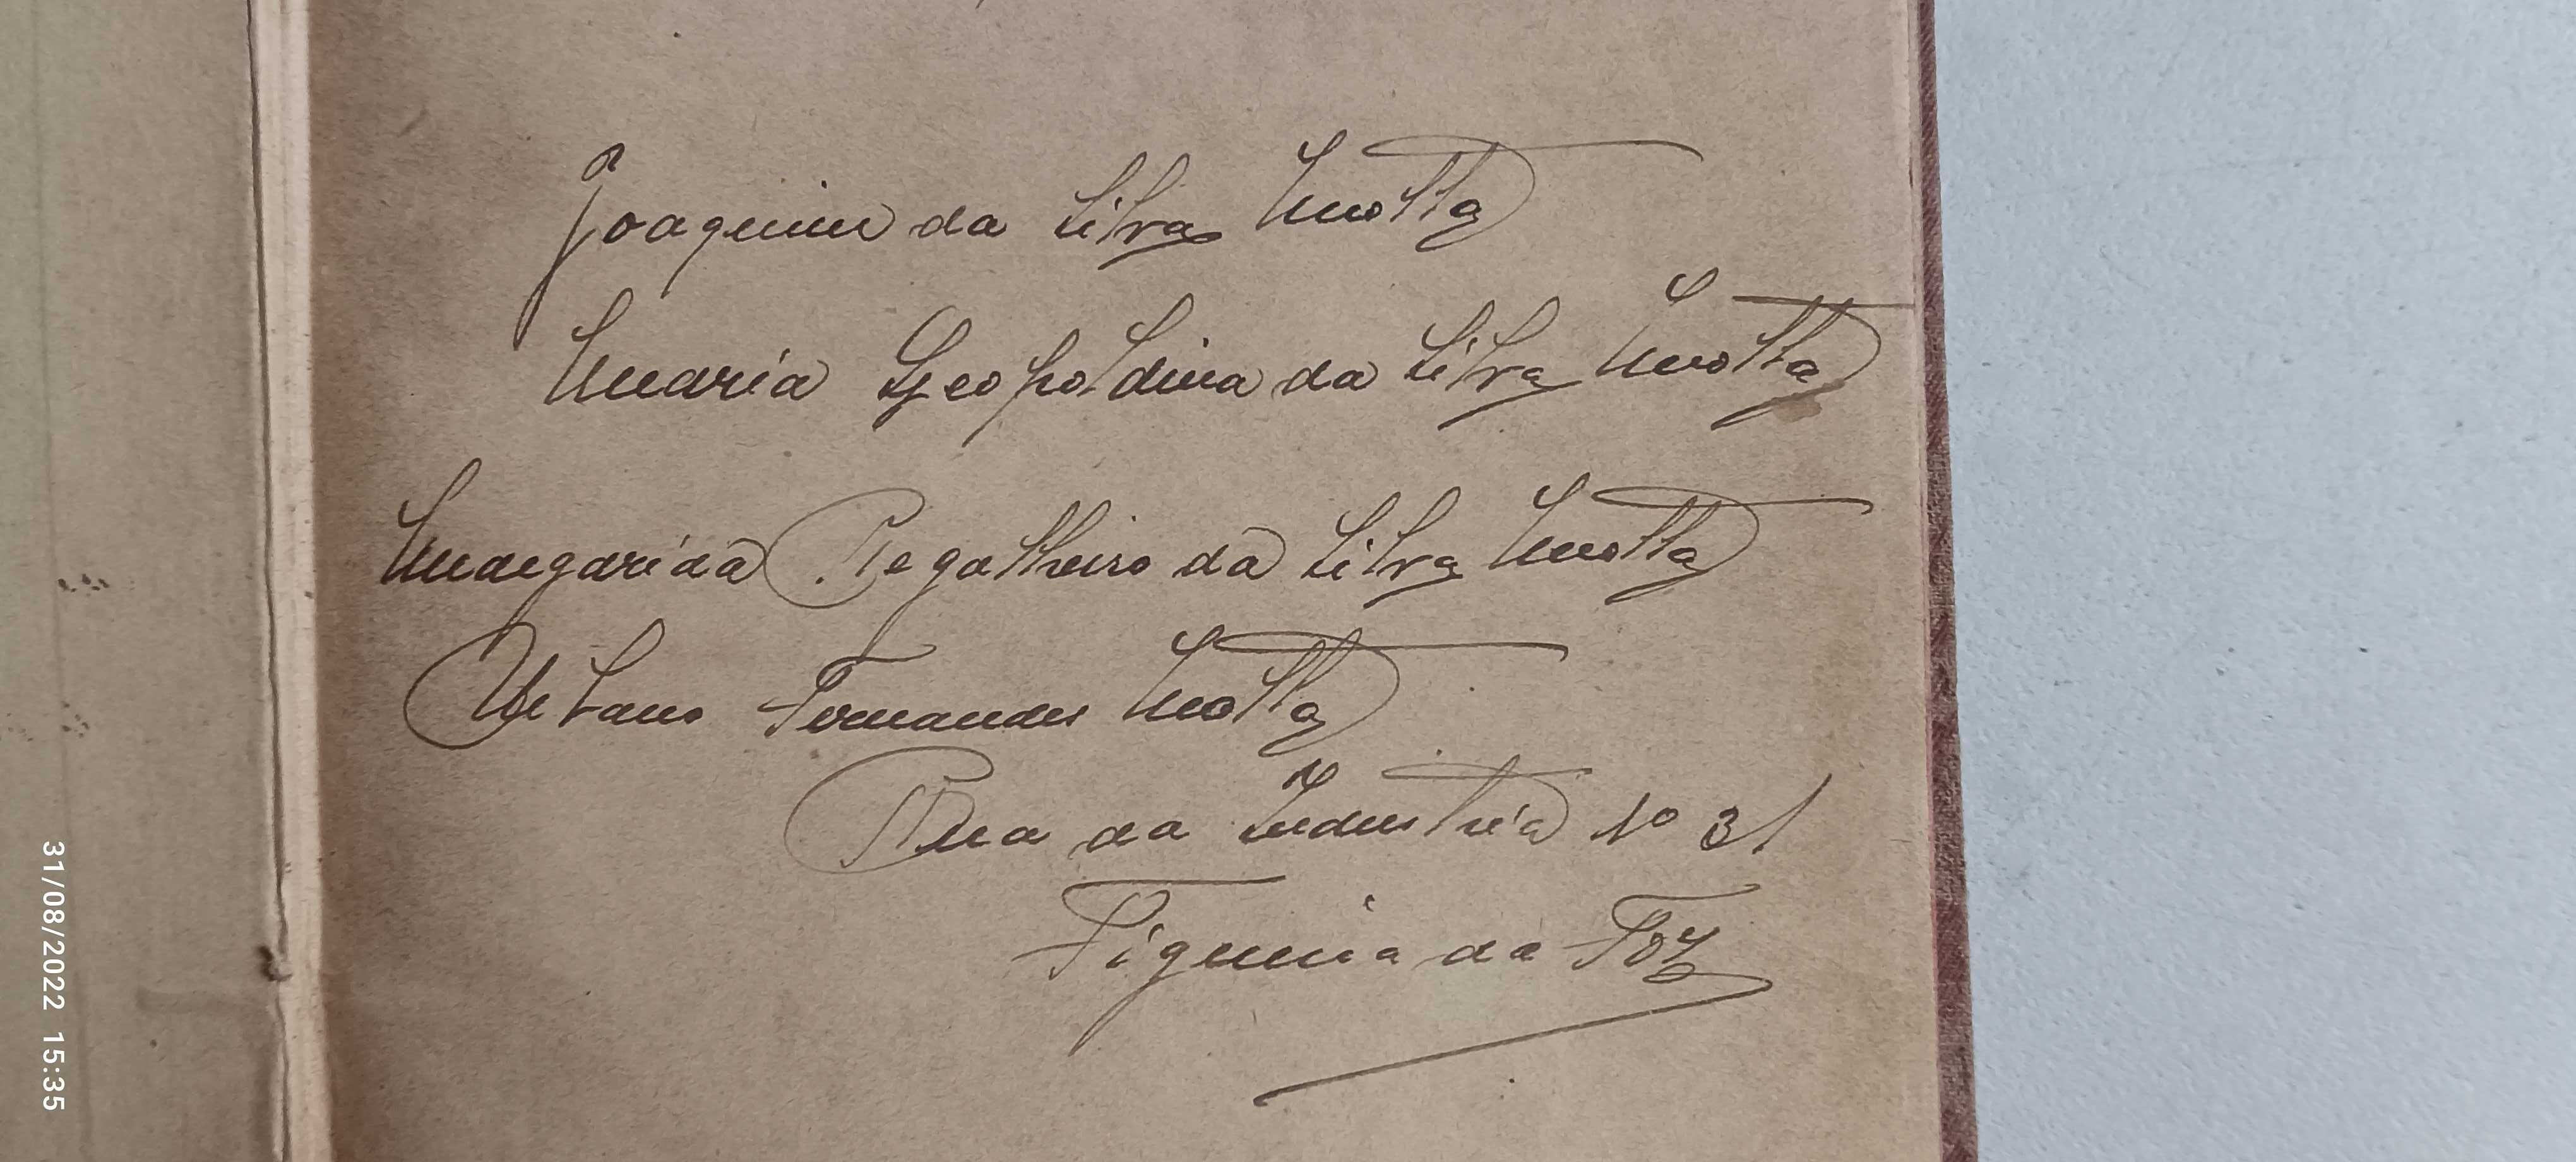 Joaquim da Silva Motta
Maria Leopoldina da Silva Motta
Margarida Regalheiro da Silva Motta
Urbano Fernandes Motta
Rua da Industria 1º 31
Figueira da Foz
31/08/2022 15:35